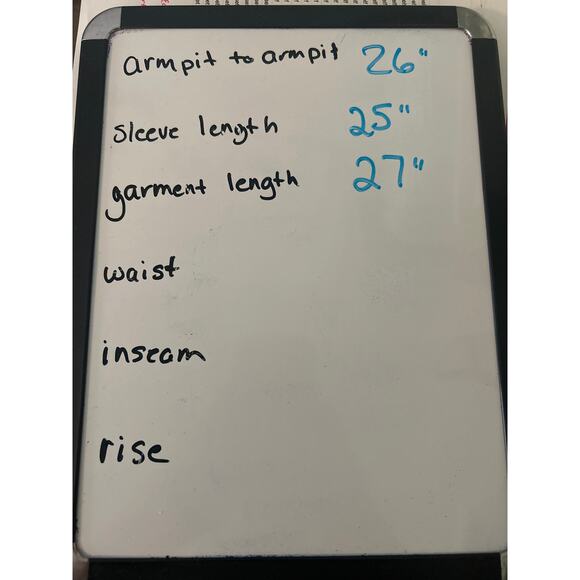 armpit to armpit 26"
sleeve length 25"
garment length 27"
waist
inseam
rise